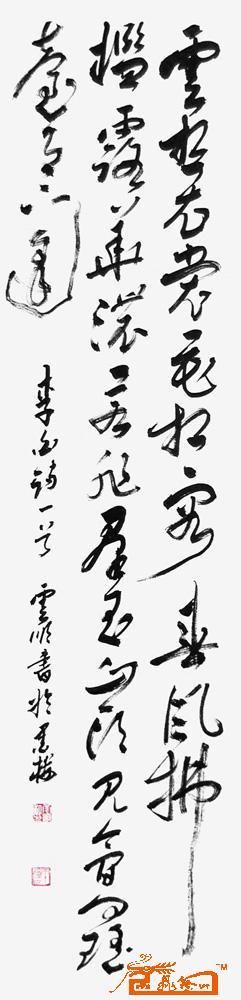 雲想衣裳花想容春風拂
檻露華濃若非群玉山頭見會向瑤
臺月下逢
李白詩一首 雲順書於墨樓